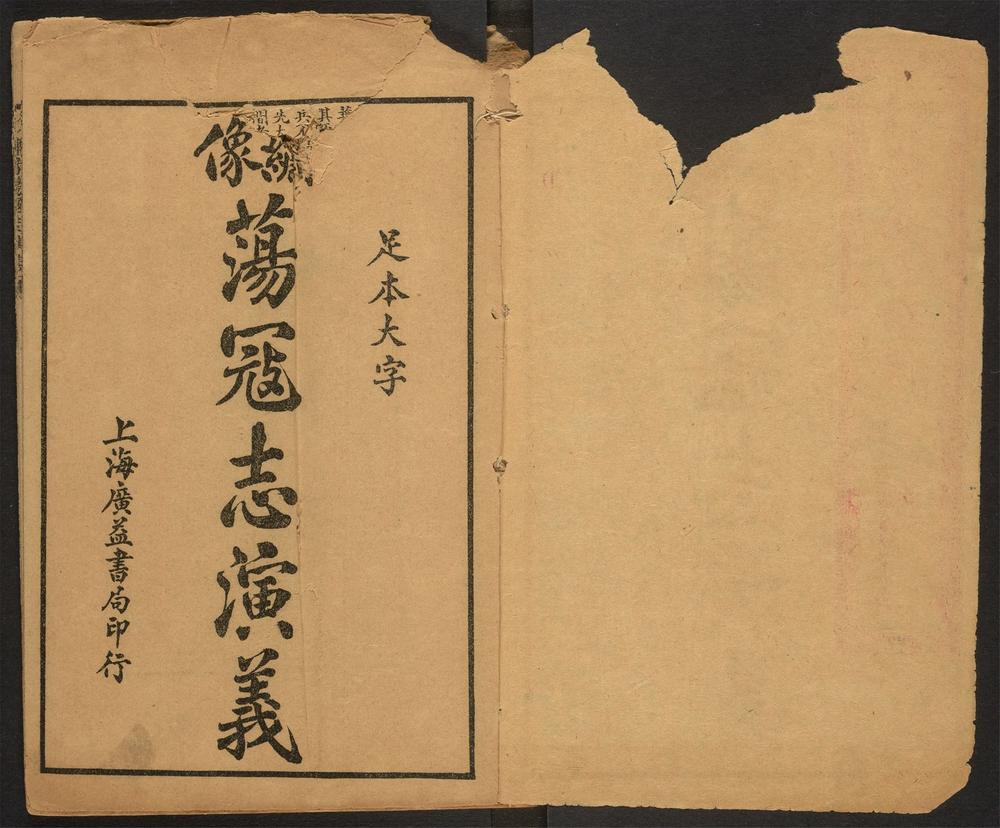 足本大字
繡像
蕩寇志演義
上海廣益書局印行